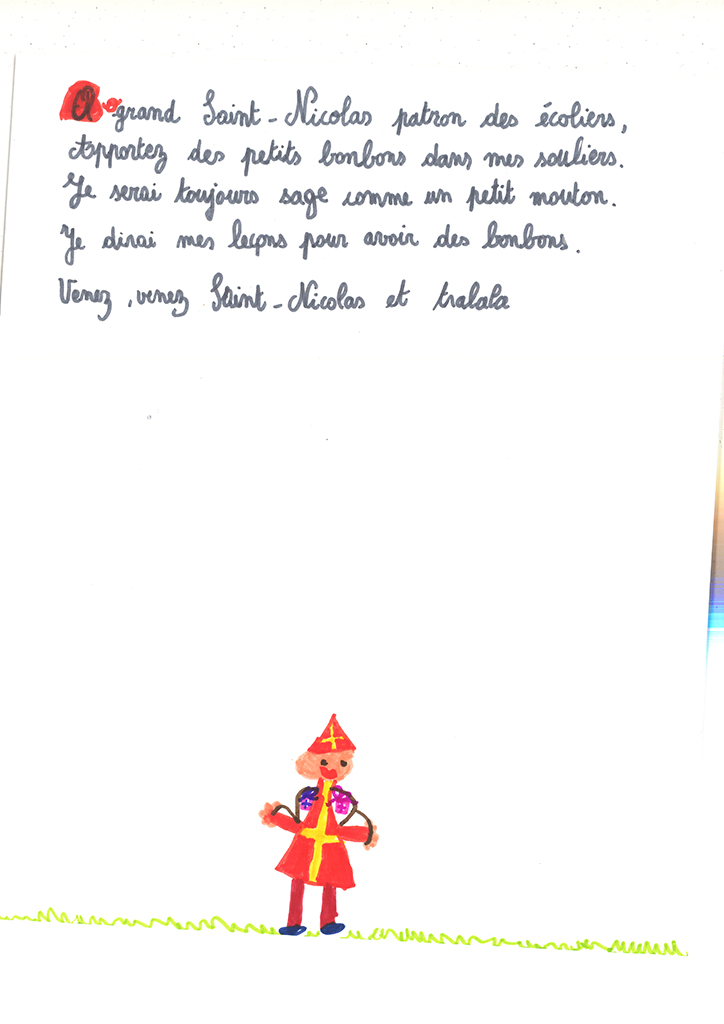 O grand Saint-Nicolas patron des écoliers,
Apportez des petits bonbons dans mes souliers.
Je serai toujours sage comme un petit mouton.
Je dirai mes leçons pour avoir des bonbons.
Venez, venez Saint-Nicolas et tralala